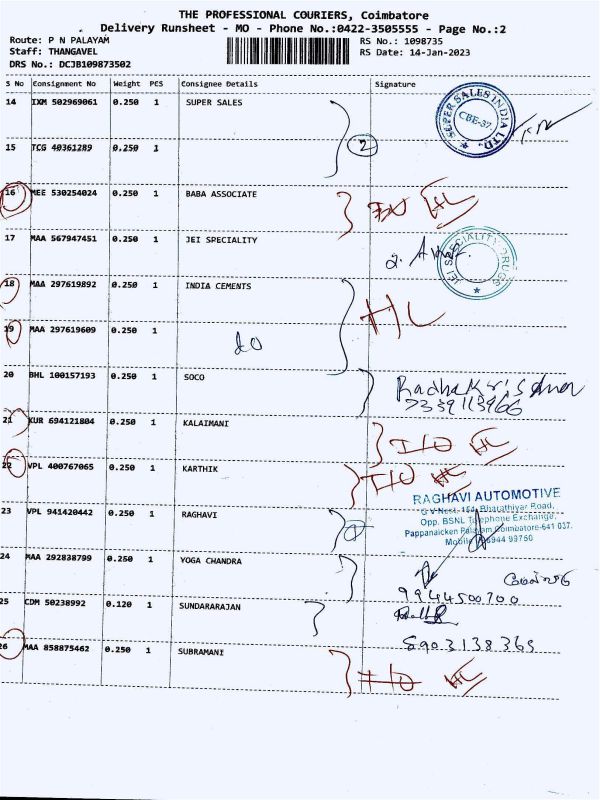 THE PROFESSIONAL COURIERS, Coimbatore
Delivery Runsheet - MO - Phone No.:0422-3505555 - Page No.:2
Route: P N PALAYAM
Staff: THANGAVEL
DRS No.: DCJB109873502
RS No.: 1098735
RS Date: 14-Jan-2023
S No Consignment No Weight PCS Consignee Details Signature
14 IXM 502969061 0.250 1 SUPER SALES
SUPER SALES INDIA LTD.
CBE-37
15 TCG 40361289 0.250 1
2
16 MEE 530254024 0.250 1 BABA ASSOCIATE
HL
17 MAA 567947451 0.250 1 JEI SPECIALITY
JEI SPECIALITY DRUGS
18 MAA 297619892 0.250 1 INDIA CEMENTS
HL
19 MAA 297619609 0.250 1
do
20 BHL 100157193 0.250 1 SOCO
Radhakrishnan
21 KUR 694121804 0.250 1 KALAIMANI
22 VPL 400767065 0.250 1 KARTHIK
23 VPL 941420442 0.250 1 RAGHAVI
RAGHAVI AUTOMOTIVE
Bharathiyar Road,
Opp. BSNL Telephone Exchange,
Pappanaicken Palayam Coimbatore-641 037.
Mobile
24 MAA 292838799 0.250 1 YOGA CHANDRA
9944500700
25 CDM 50238992 0.120 1 SUNDARARAJAN
8903138369
26 MAA 858875462 0.250 1 SUBRAMANI